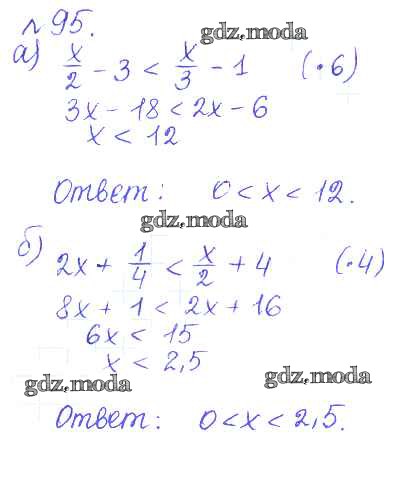 №95.
gdz.moda
а) x/2 - 3 < x/3 - 1 (·6)
3x - 18 < 2x - 6
x < 12
Ответ: 0 < x < 12.
gdz.moda
б) 2x + 1/4 < x/2 + 4 (·4)
8x + 1 < 2x + 16
6x < 15
x < 2,5
gdz.moda gdz.moda
Ответ: 0 < x < 2,5.